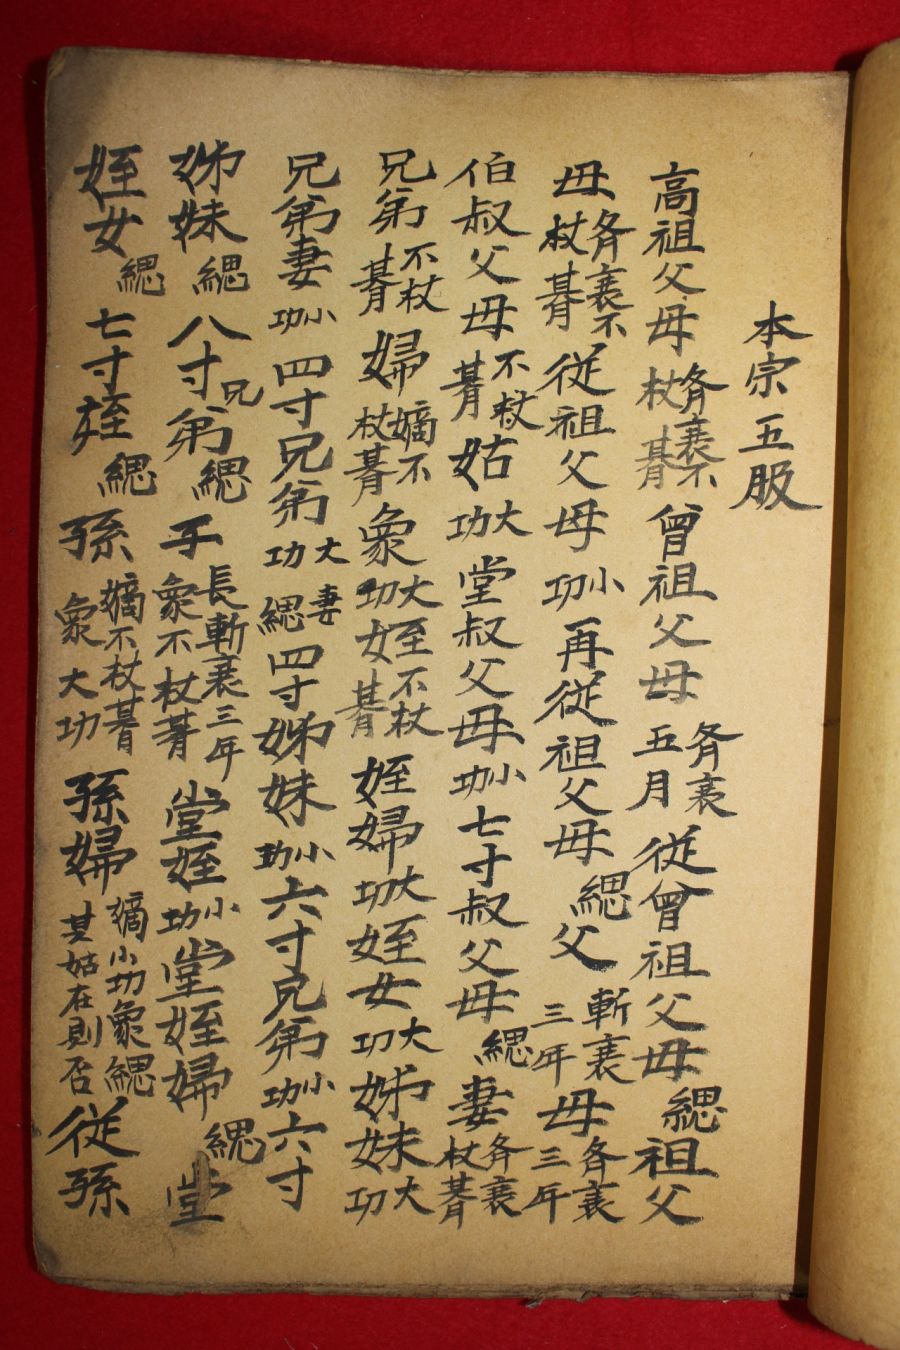 本宗五服
高祖父母 齊衰不杖朞 曾祖父母 齊衰五月 從曾祖父母 緦 祖父
母 齊衰不杖朞 從祖父母 小功 再從祖父母 緦 父 斬衰三年 母 齊衰三年
伯叔父母 不杖朞 姑 大功 堂叔父母 小功 七寸叔父母 緦 妻 齊衰杖朞
兄弟 不杖朞 婦 嫡不杖朞 衆大功 姪女 不杖朞 姪婦 大功 姪女 大功 姊妹 大功
兄弟妻 小功 四寸兄弟 大功 妻緦 四寸姊妹 小功 六寸兄弟 小功 六寸
姊妹 緦 八寸兄弟 緦 子 長斬衰三年 衆不杖朞 堂姪 小功 堂姪婦 緦 堂
姪女 緦 七寸姪 緦 孫 嫡不杖朞 衆大功 孫婦 嫡小功衆緦 其姑在則否 從孫